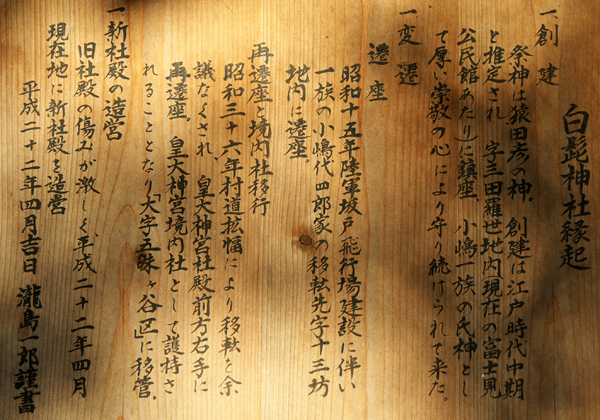 白髭神社縁起
一創建
祭神は猿田彦の神。創建は江戸時代中期
と推定され 字三田羅世地内現在の富士見
公民館あたりに鎮座 小嶋一族の氏神とし
て厚い崇敬の心により守り続けられて来た。
一変遷
遷座
昭和十五年陸軍坂戸飛行場建設に伴い
一族の小嶋代四郎家の移転先字十三坊
地内に遷座。
再遷座と境内社移行
昭和三十六年村道拡幅により移転を余
議なくされ 皇大神宮社殿前方右手に
再遷座。皇大神宮境内社として護持さ
れることとなり「大字五味ヶ谷区」に移管。
一新社殿の造営
旧社殿の傷みが激しく、平成二十二年四月
現在地に新社殿を造営
平成二十二年四月吉日 瀧島一郎謹書